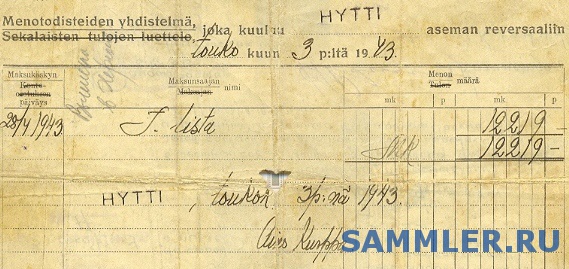 Menotodisteiden yhdistelmä, joka kuuluu HYTTI aseman reversaaliin
Sekalaisten tulojen luettelo,
touko kuun 3 p:itä 1943.
Maksukäskyn päiväys
Maksunsaajan nimi
Menon Tulon määrä
mk p mk p mk p
28/4 1943 J. lista 12219 –
Smk 12219 –
HYTTI, toukok. 3 p:nä 1943.
Aino
SAMMLER.RU